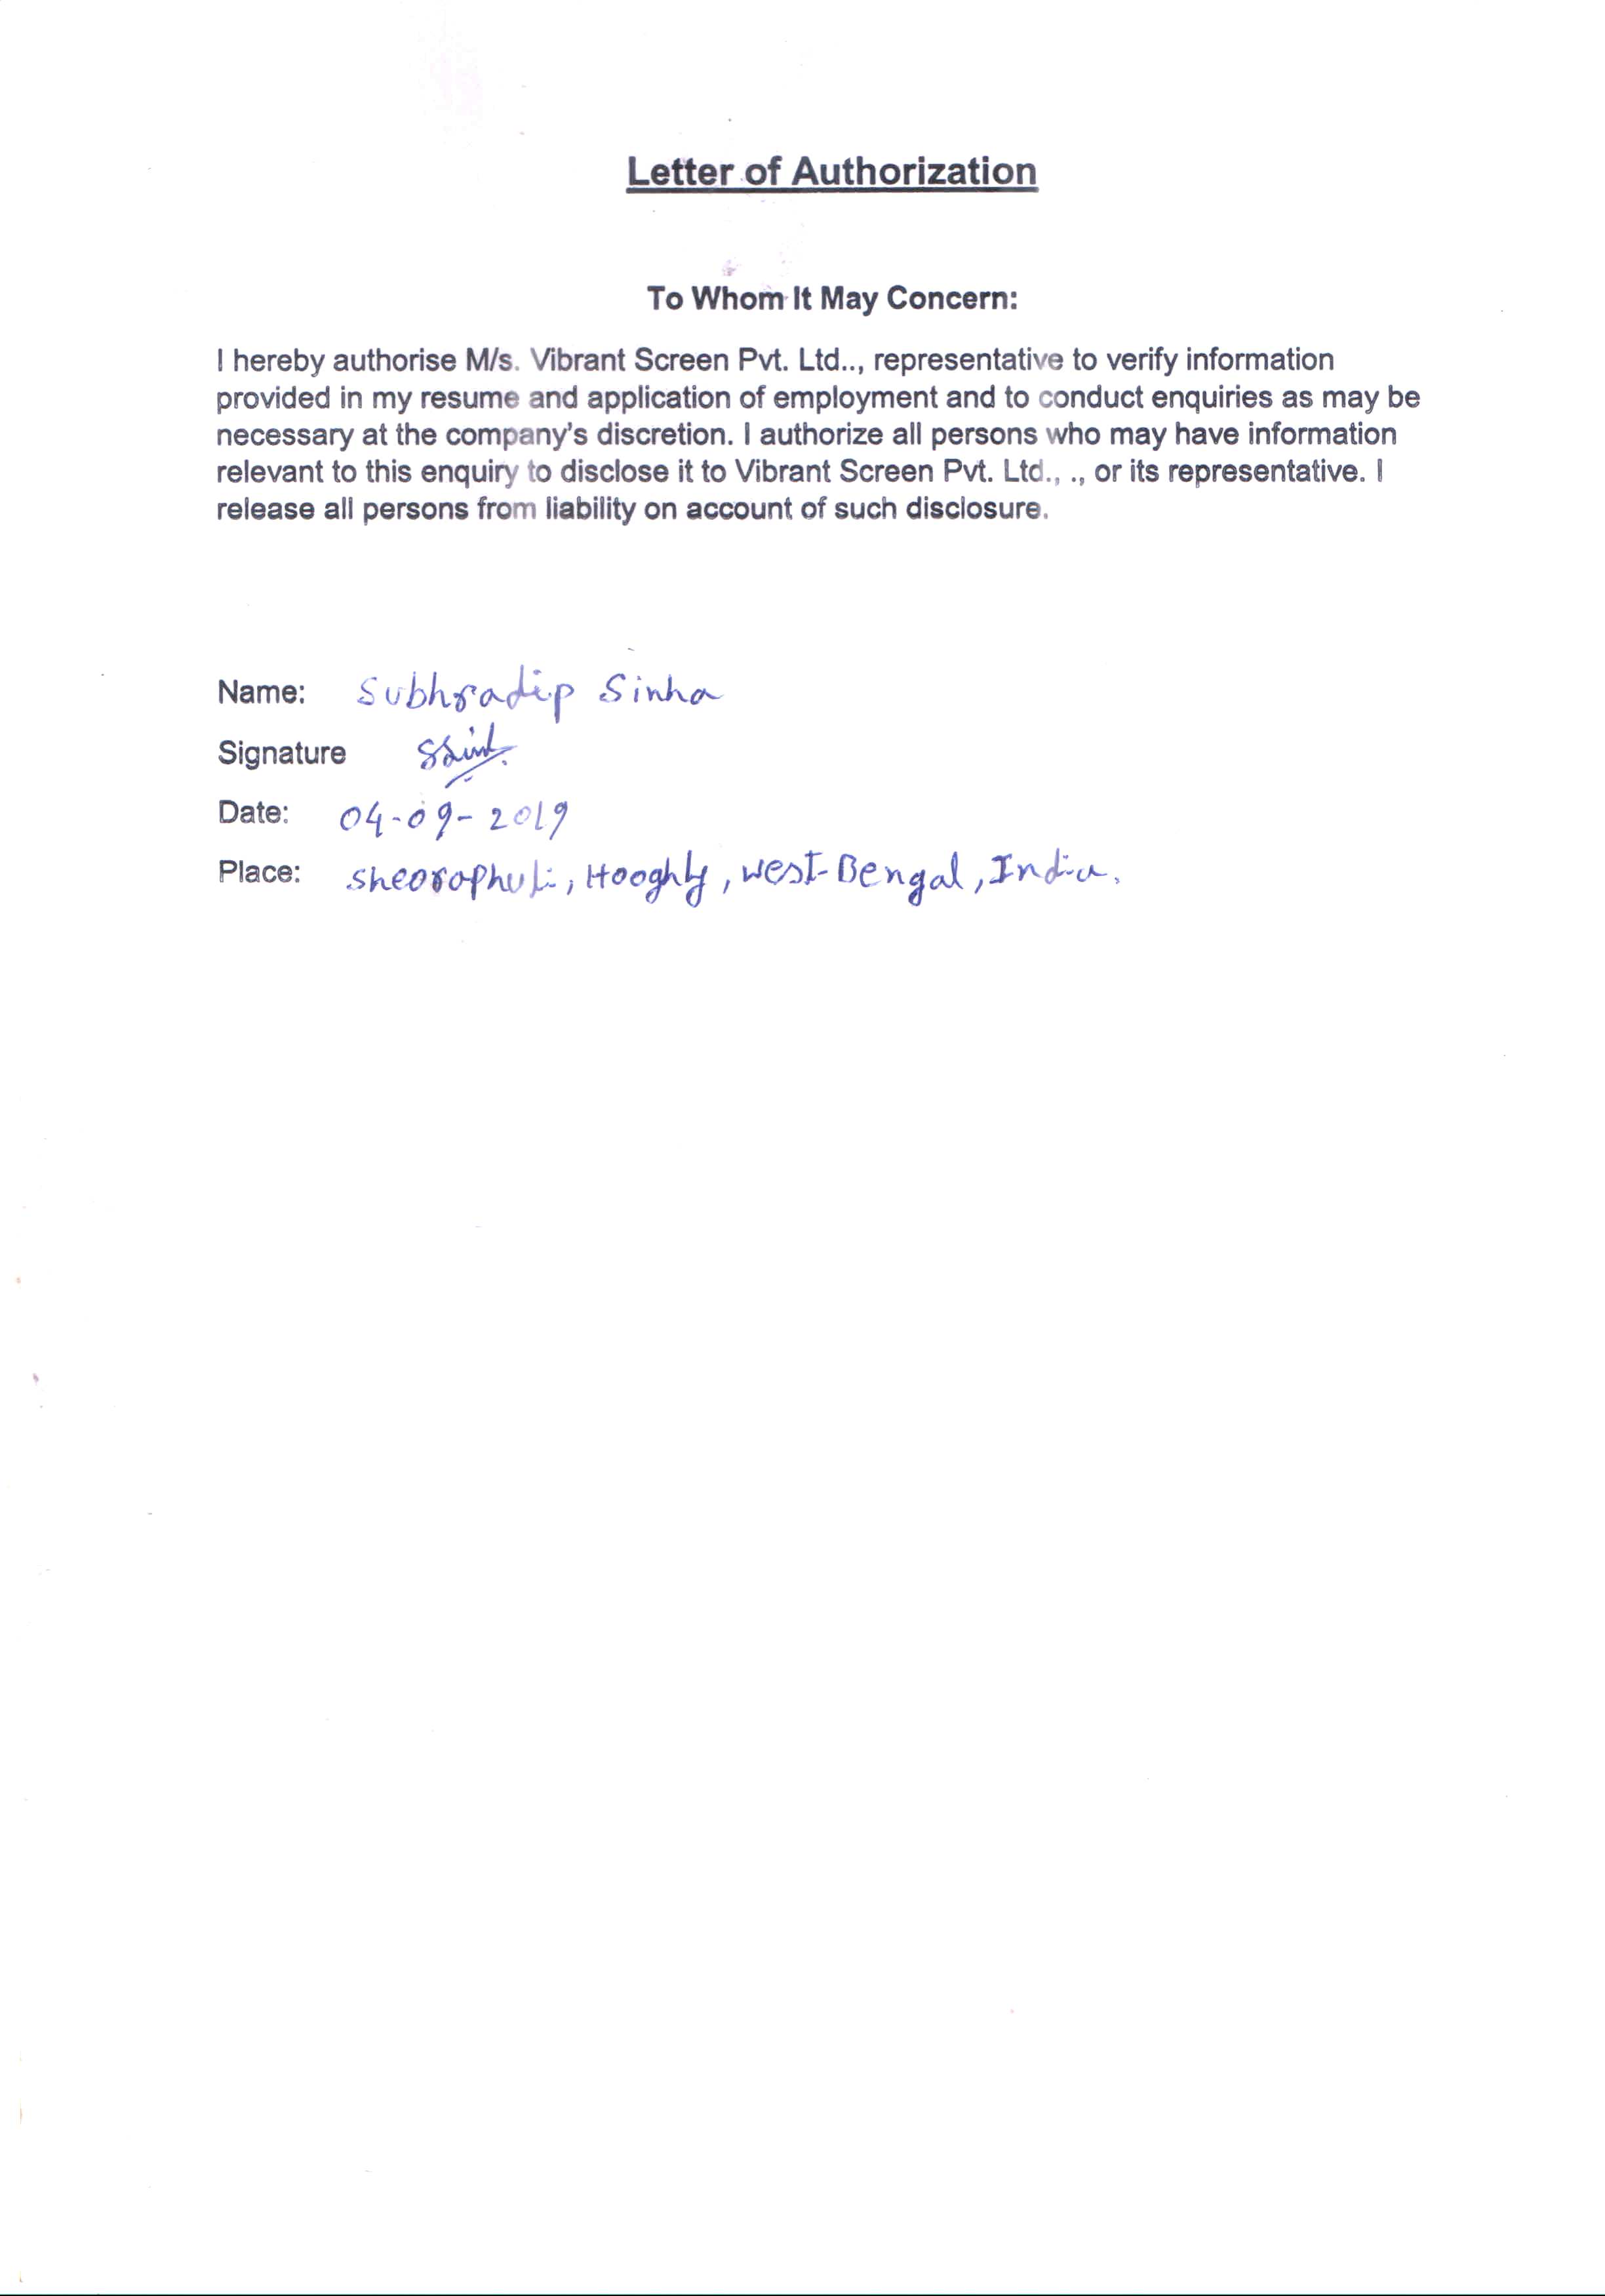 Letter of Authorization
To Whom It May Concern:
I hereby authorise M/s. Vibrant Screen Pvt. Ltd.., representative to verify information
provided in my resume and application of employment and to conduct enquiries as may be
necessary at the company's discretion. I authorize all persons who may have information
relevant to this enquiry to disclose it to Vibrant Screen Pvt. Ltd., ., or its representative. I
release all persons from liability on account of such disclosure.
Name: Subhradip Sinha
Signature
Date: 04-09-2019
Place: sheoraphuli, Hooghly, west-Bengal, India.